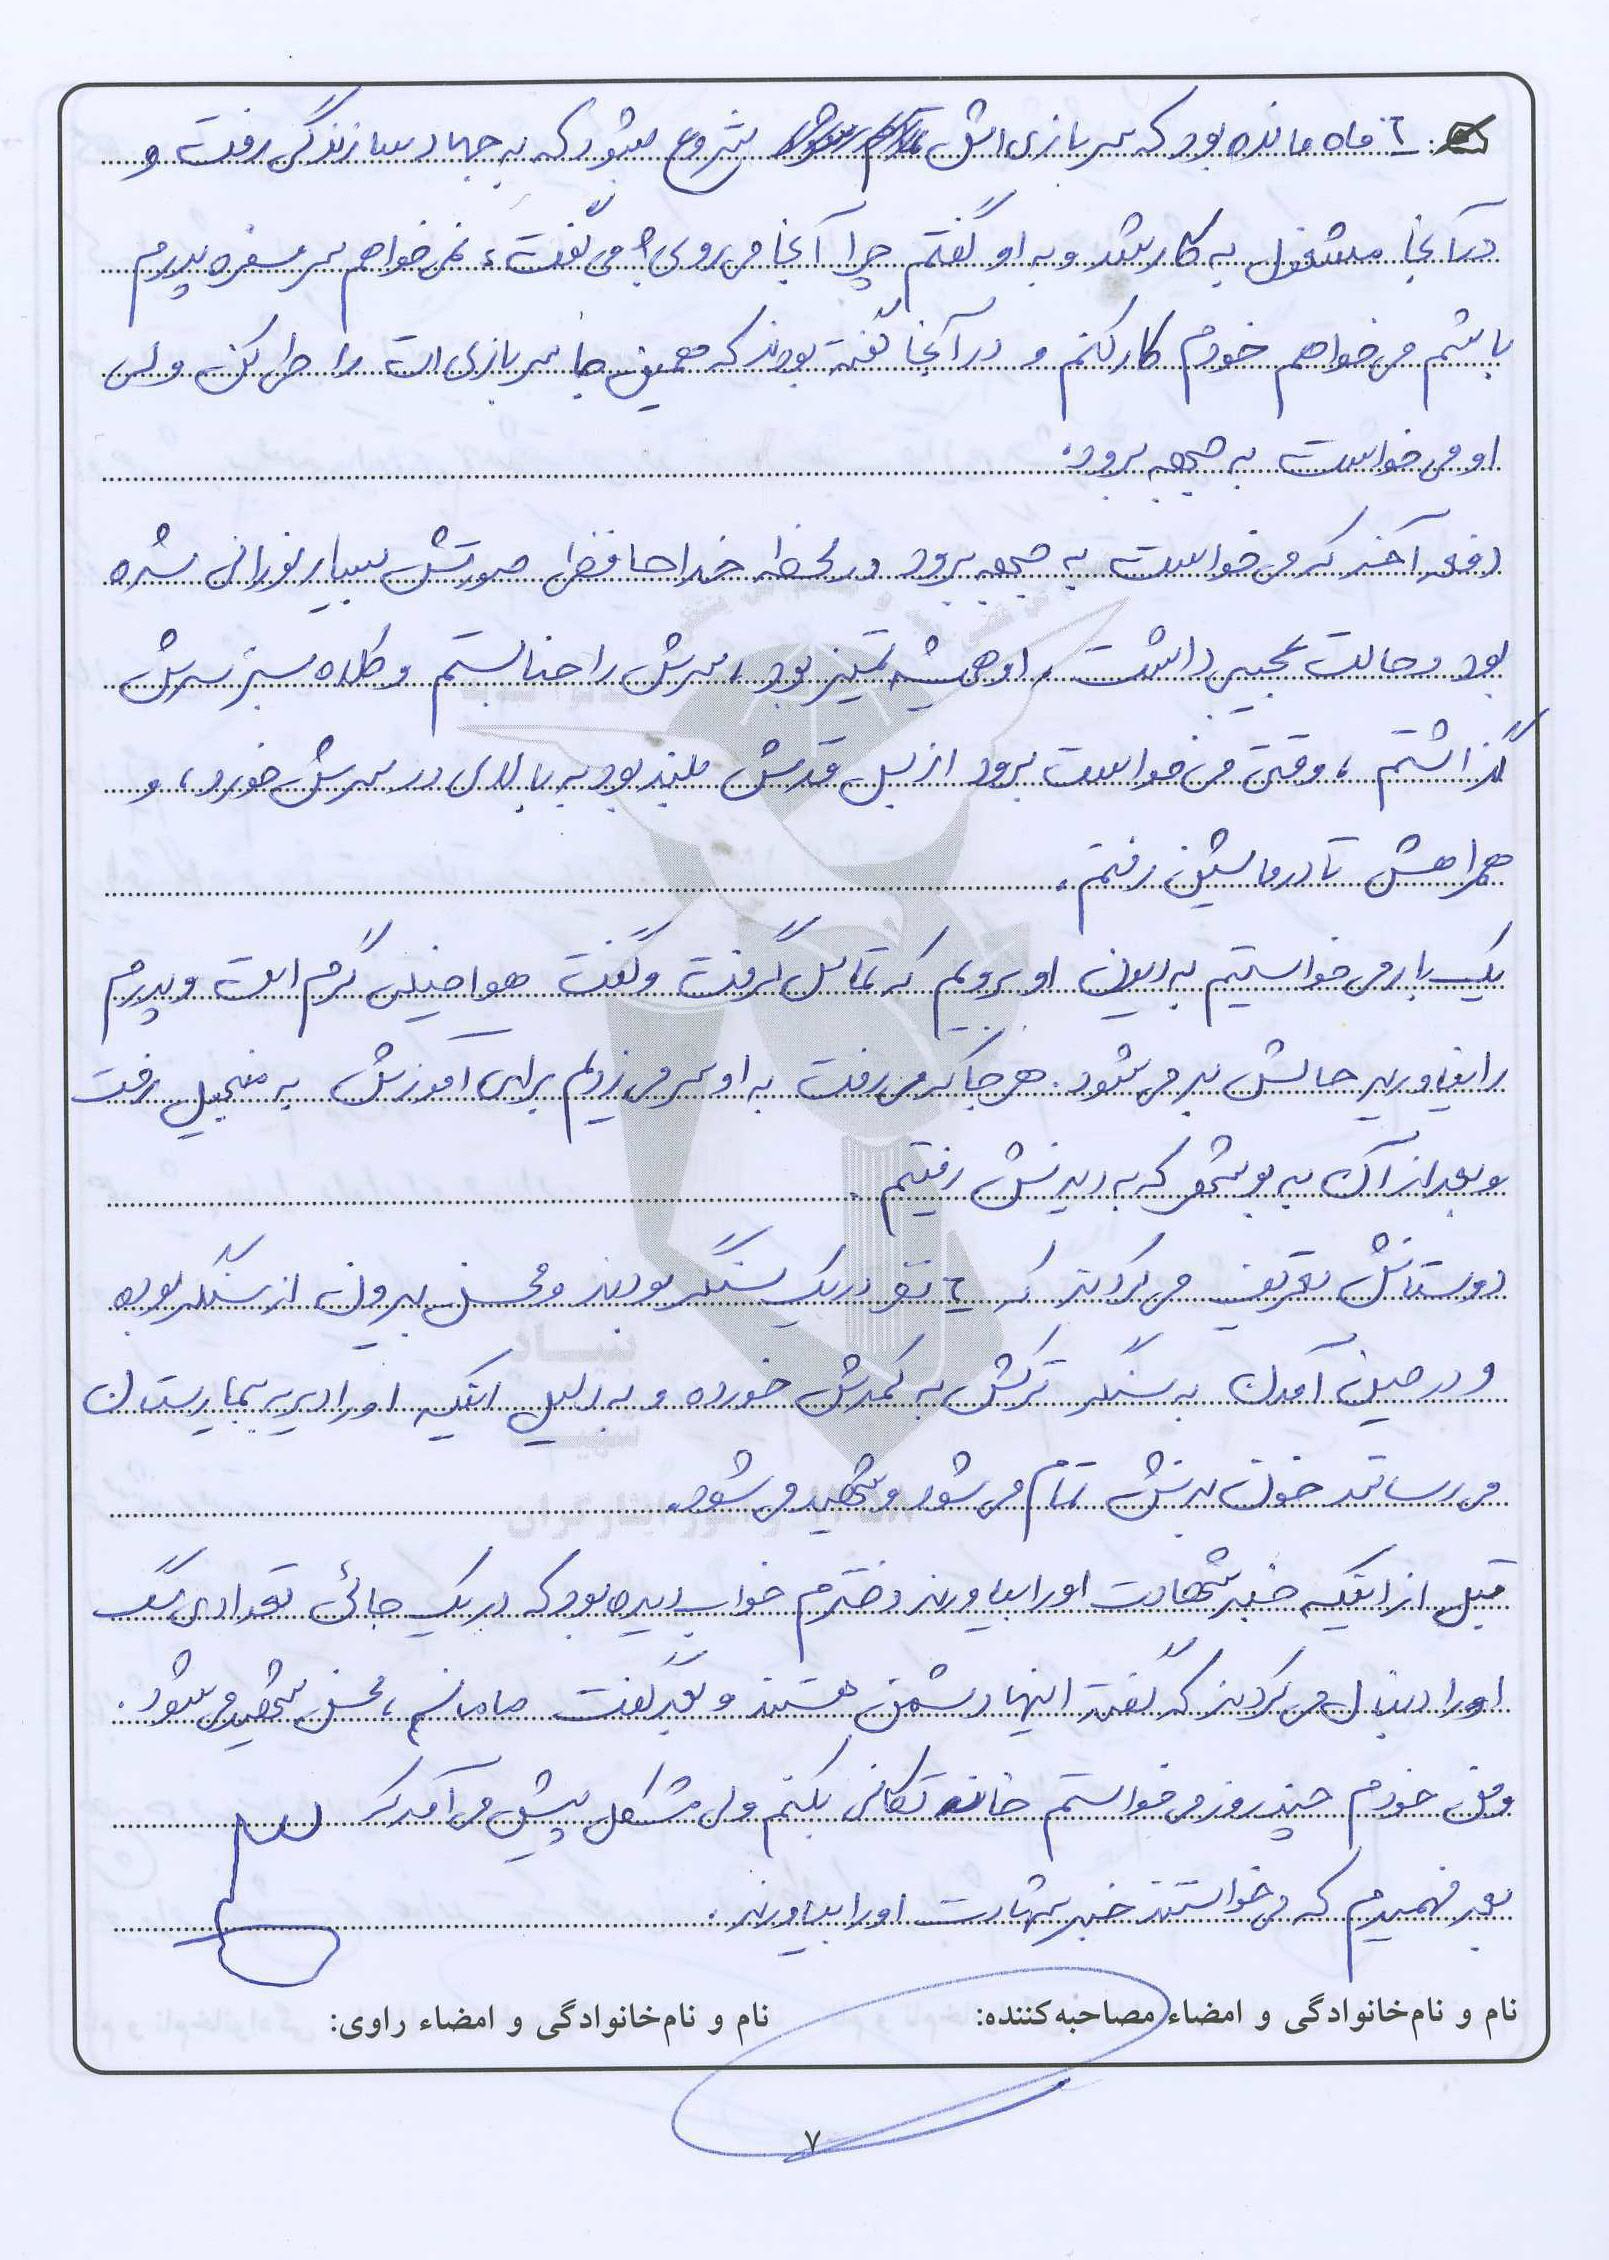 ۶ ماه مانده بود که سربازی اش شروع بشود که به جهاد سازندگی رفت و
در آنجا مشغول به کار شد و به او گفتم چرا آنجا می روی؟ می گفت، نمی خواهم سر سفره پدرم
باشم می خواهم خودم کار کنم و در آنجا گفته بودند که همین جا سربازی ات را طی کن ولی
او می خواست به جبهه برود.
دفعه آخر که می خواست به جبهه برود در لحظه خداحافظی صورتش بسیار نورانی شده
بود و حالت عجیبی داشت، او همیشه تمیز بود، سرش را حنا بستم و کلاه سبز سرش
گذاشتم، وقتی می خواست برود از بس قدش بلند بود به بالای در سرش خورد، و
همراهش تا در ماشین رفتم.
یک بار می خواستیم به دیدن او برویم که تماس گرفت و گفت هوا خیلی گرم است و پدرم
را نیاورید حالش بد می شود. هر جا که می رفت به او سر می زدیم برای آموزش به منجیل رفت
و بعد از آن به بوشهر که به دیدنش رفتیم.
دوستانش تعریف می کردند که ۶ نفر در یک سنگر بودند و محسن بیرون از سنگر بوده
و در حین آمدن به سنگر ترکش به کمرش خورده و به دلیل اینکه او را دیر به بیمارستان
می رسانند خون بدنش تمام می شود و شهید می شود.
قبل از اینکه خبر شهادت او را بیاورند دخترم خواب دیده بود که در یک جائی تعدادی سگ
او را دنبال می کردند که گفته اینها دشمن هستند و بعد گفت مامانم، محسن شهید می شود.
و من خودم چند روز می خواستم خانه تکانی بکنم ولی مشکل پیش می آمد که
بعد فهمیدم که می خواستند خبر شهادت او را بیاورند.
نام و نام خانوادگی و امضاء مصاحبه کننده: نام و نام خانوادگی و امضاء راوی:
۷